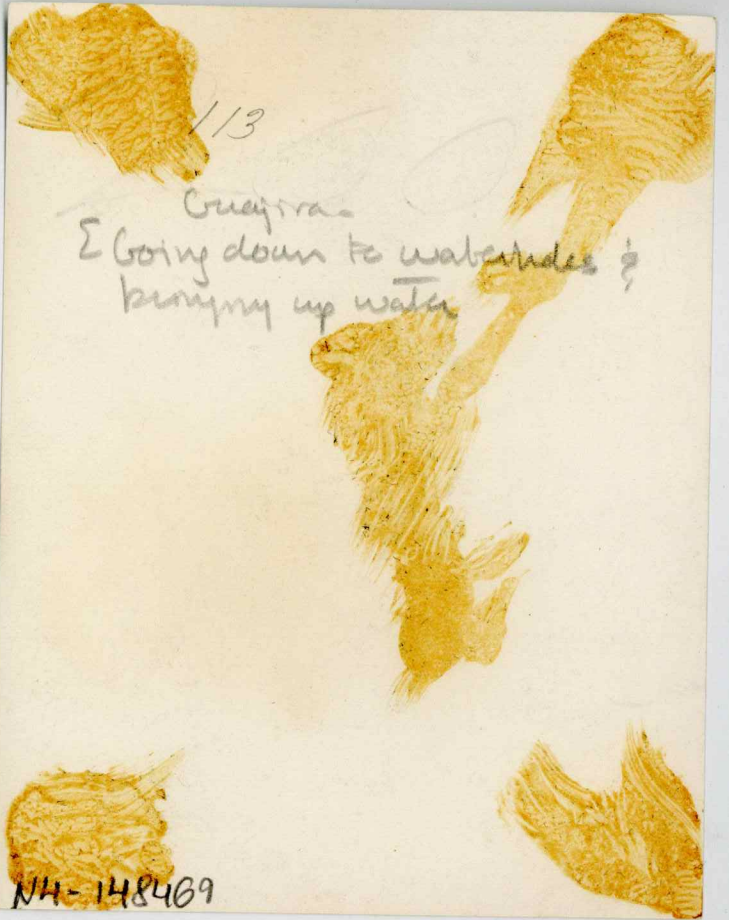 113
Guajira
Σ Going down to waterholes &
bringing up water
N4-148469